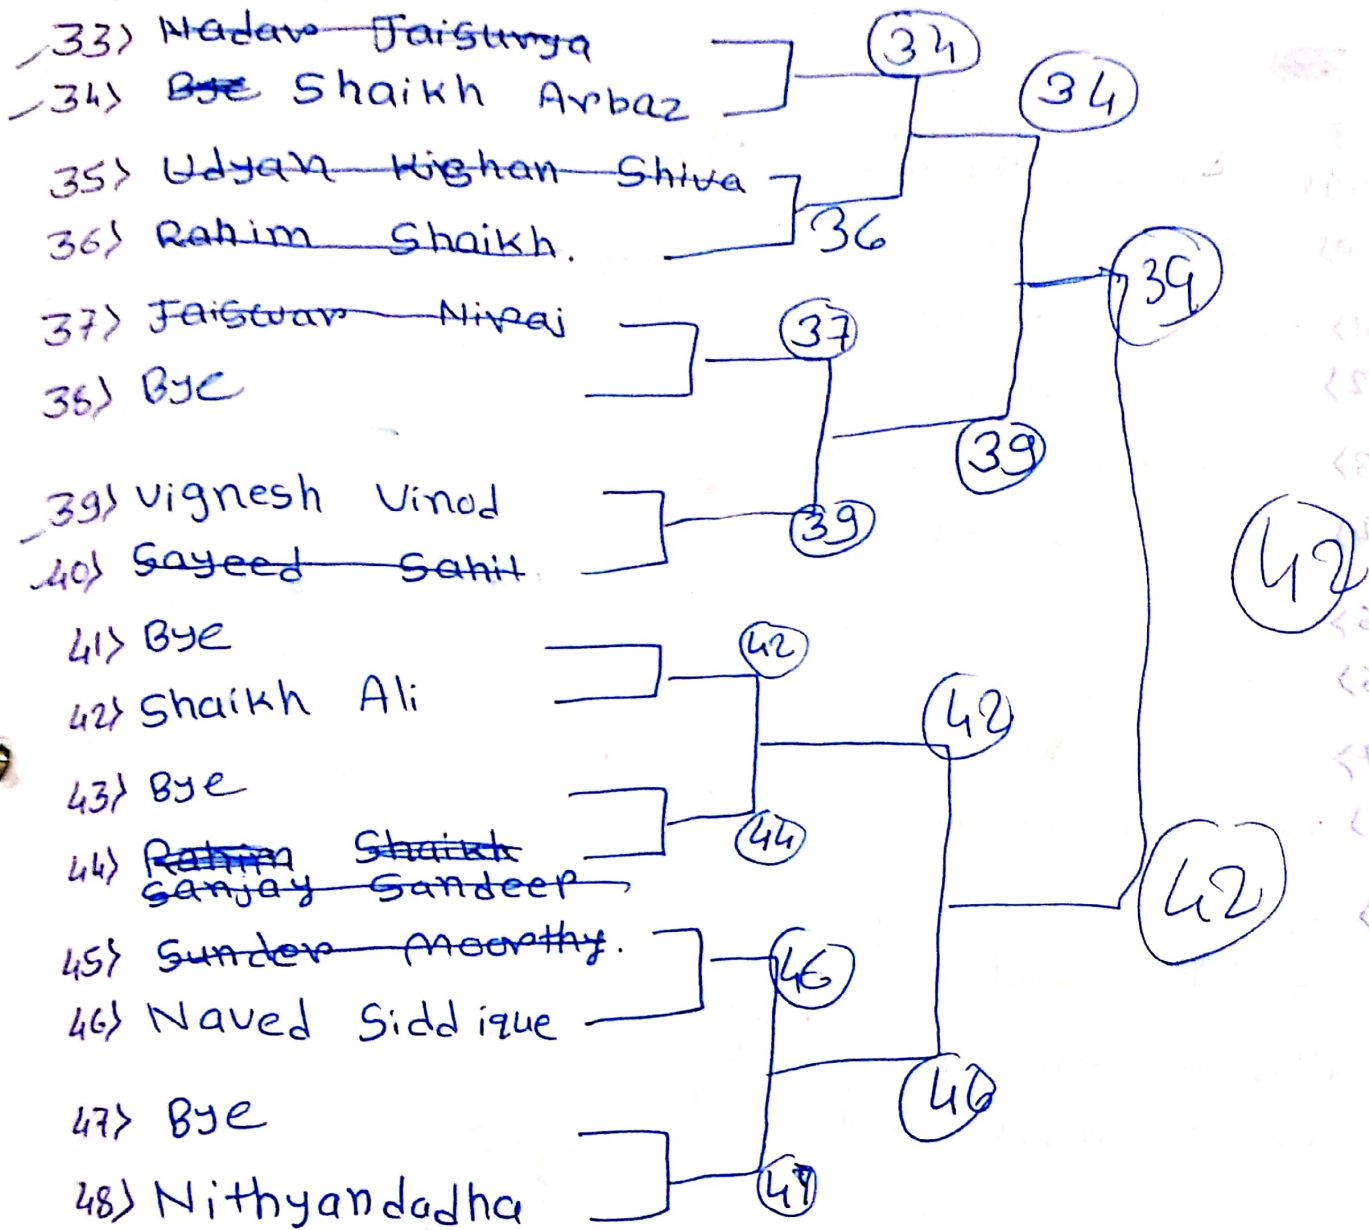 33) Nadar Jaisurya
34) Bye Shaikh Arbaz
35) Udyan Kishan Shiva
36) Rahim Shaikh.
37) Jaiswar Niraj
38) Bye
39) Vignesh Vinod
40) Sayeed Sahil
41) Bye
42) Shaikh Ali
43) Bye
44) Rahim Shaikh
Sanjay Sandeep
45) Sunder Moorthy.
46) Naved Siddique
47) Bye
48) Nithyandadha
34
36
37
39
42
44
46
34
39
42
46
39
42
42